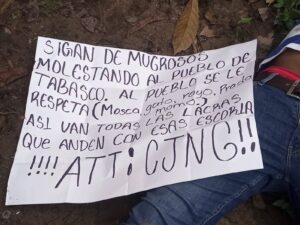 SIGAN DE MUGROSOS
MOLESTANDO AL PUEBLO DE
TABASCO. AL PUEBLO SE LE
RESPETA (Mosca, gato, rayo,
momo)
ASI VAN TODAS LAS LACRAS
Que ANDEN CON ESAS ESCORIA
!!!! ATT: CJNG!!